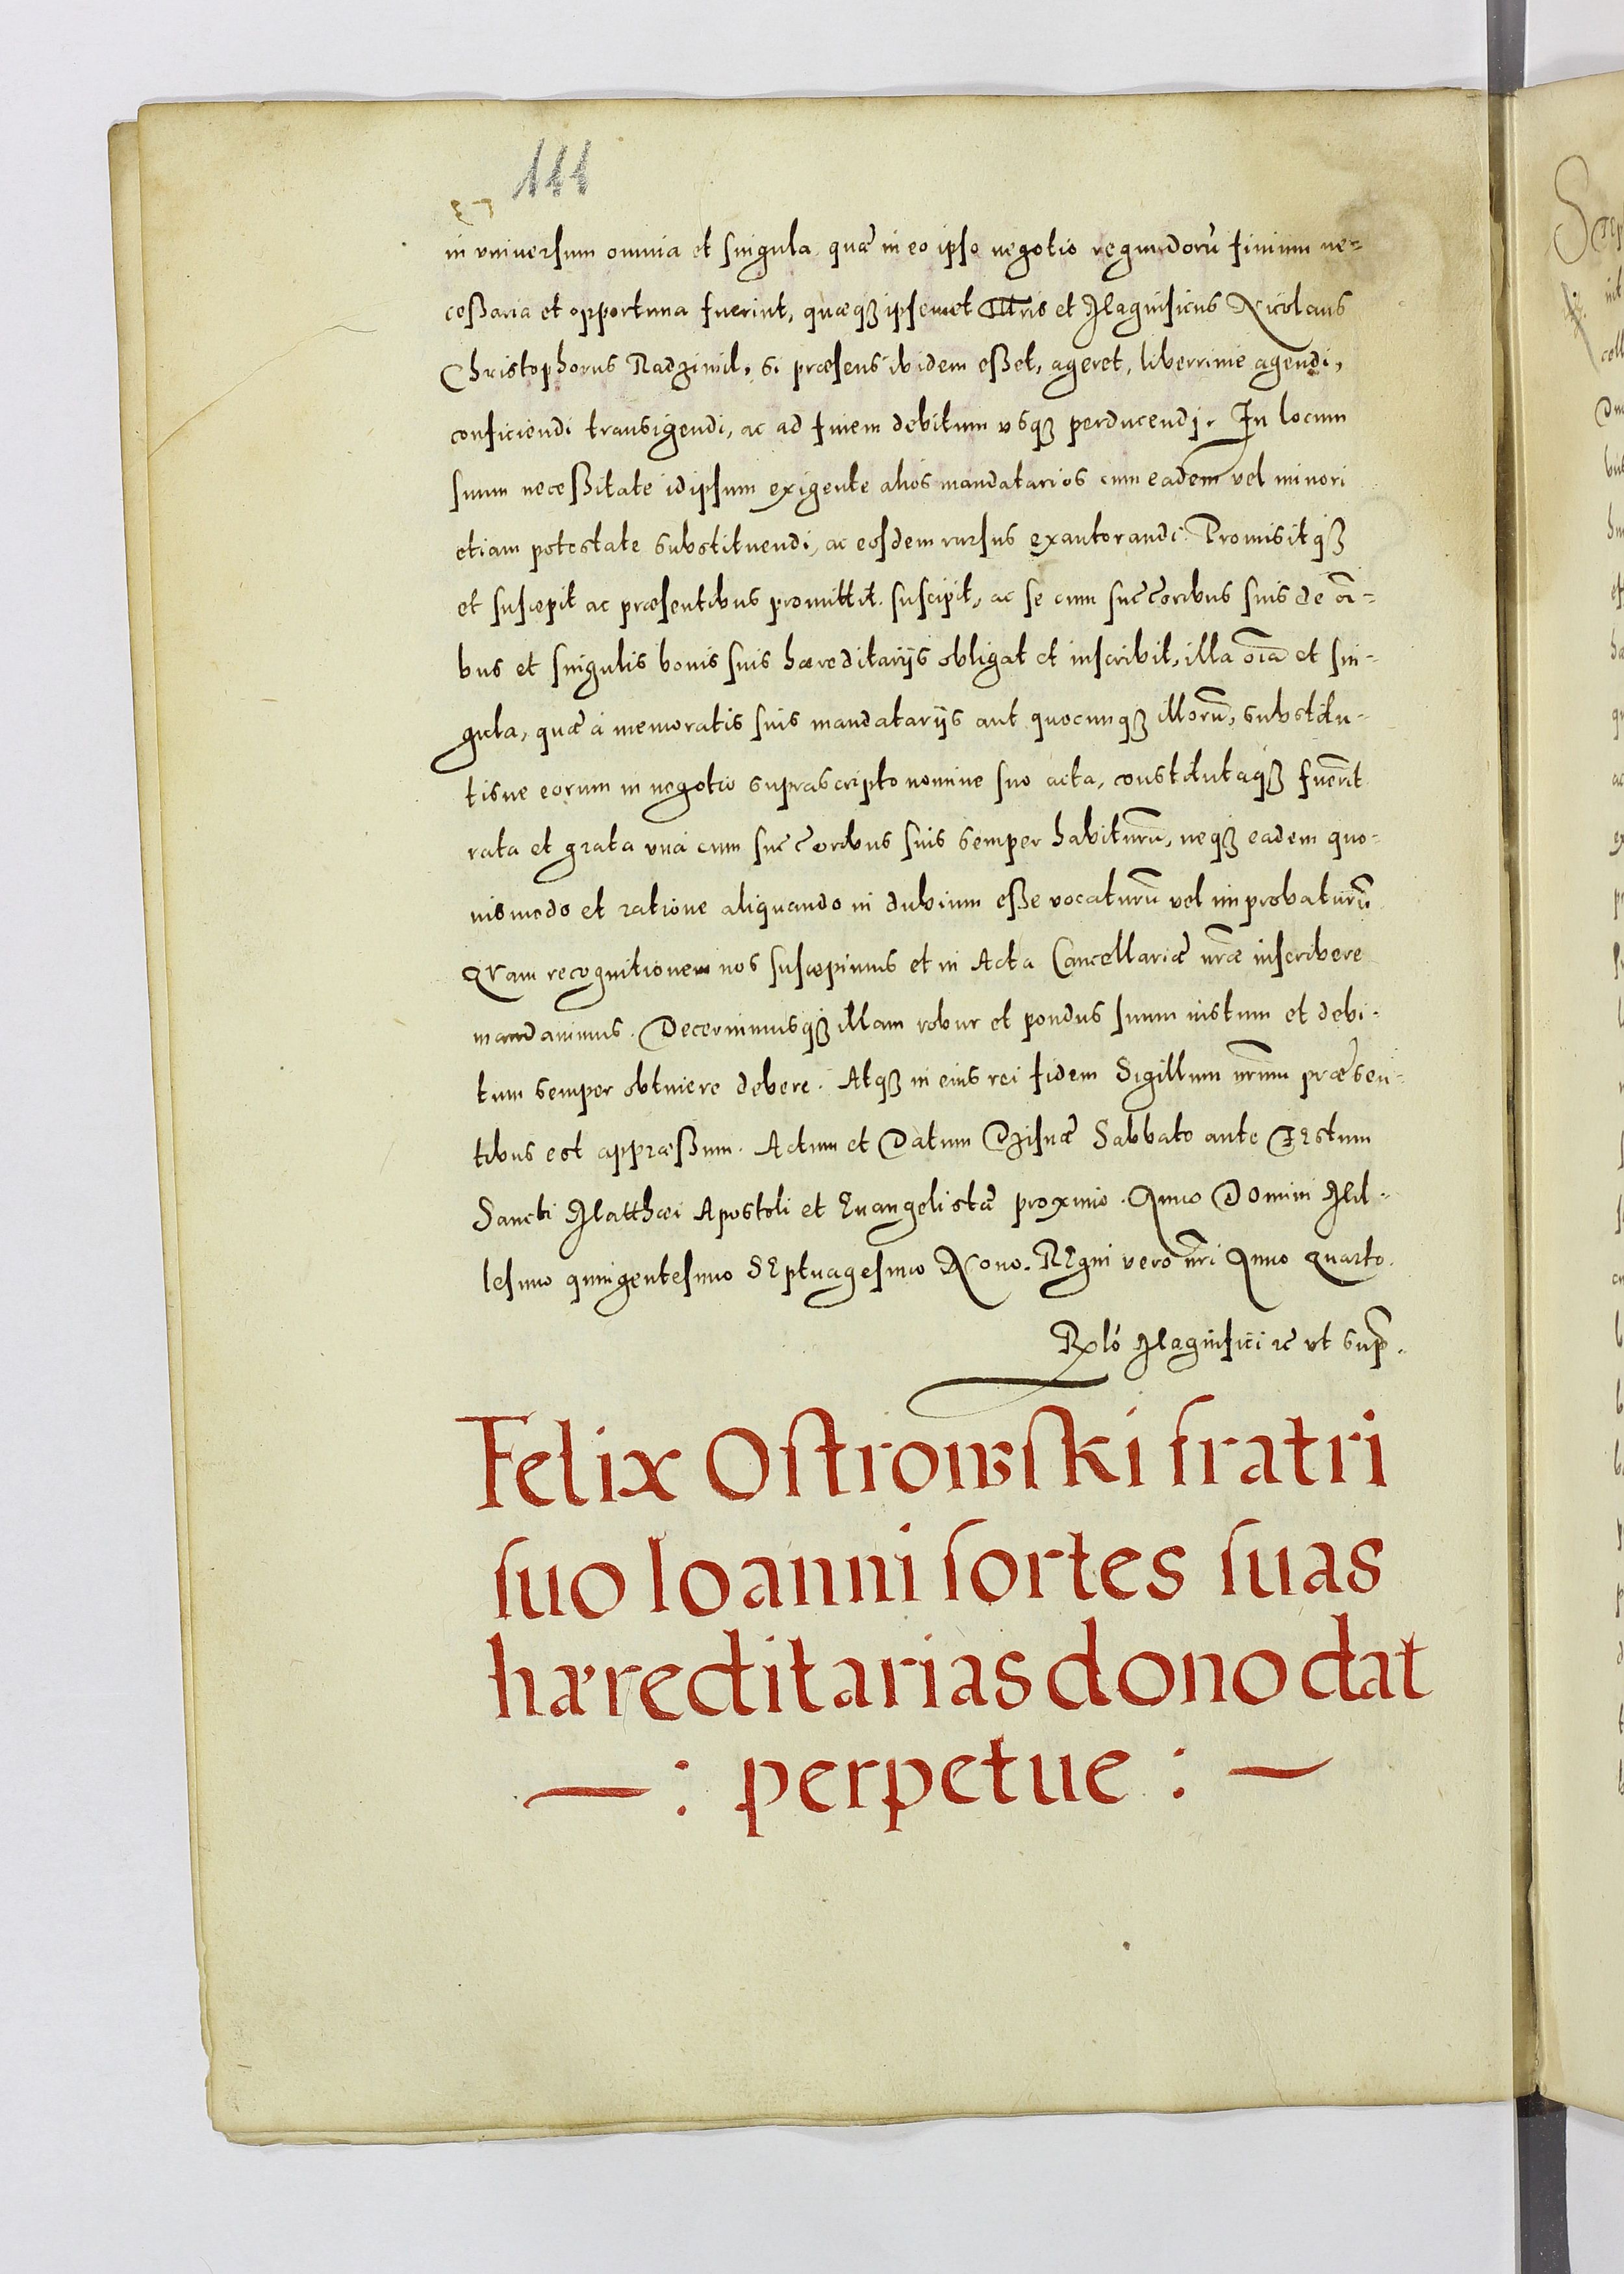 111
in vniversum omnia et singula quæ in eo ipso negotio regundorū finium ne-
ceßaria et opportuna fuerint, quæqꝫ ipsemet Illtris et Magnificus Nicolaus
Christophorus Radziwil, si præsens ibidem eßet, ageret, liberrime agendi,
conficiendi transigendi, ac ad finem debitum vsqꝫ perducendj. In locum
suum neceßitate id ipsum exigente alios mandatarios cum eadem vel minori
etiam potestate substituendi, ac eosdem rursus exautorandi. Promisitqꝫ
et suscepit ac præsentibus promittit. suscipit, ac se cum succ̄oribus suis de oī-
bus et singulis bonis suis hæreditarijs obligat et inscribit, illa oīa et sin-
gula, quæ a memoratis suis mandatarijs aut quocunqꝫ illorū, substitu-
tisue eorum in negotio suprascripto nomine suo acta, constitutaqꝫ fuerīt
rata et grata vnà cum succ̄oribus suis semper habiturū, neqꝫ eadem quo-
uismodo et ratione aliquando in dubium eße vocaturū vel improbaturū
Qvam recognitionem nos suscepimus et in Acta Cancellariæ nr̄æ inscribere
mandauimus. Decernimusqꝫ illam robur et pondus suum iustum et debi-
tum semper obtinere debere. Atqꝫ in eius rei fidem Sigillum nr̄um præsen-
tibus est appræßum. Actum et Datum Dzisnæ Sabbato ante Festum
Sancti Matthæi Apostoli et Euangelistæ proximo. Anno Domini Mil-
lesimo quingentesimo SEptuagesimo Nono. REgni vero nr̄i Anno quarto.
Rlō Magnifici ꝛc vt sup̄.
Felix Ostrowski fratri
suo Ioanni sortes suas
hæreditarias dono dat
—: perpetue :—